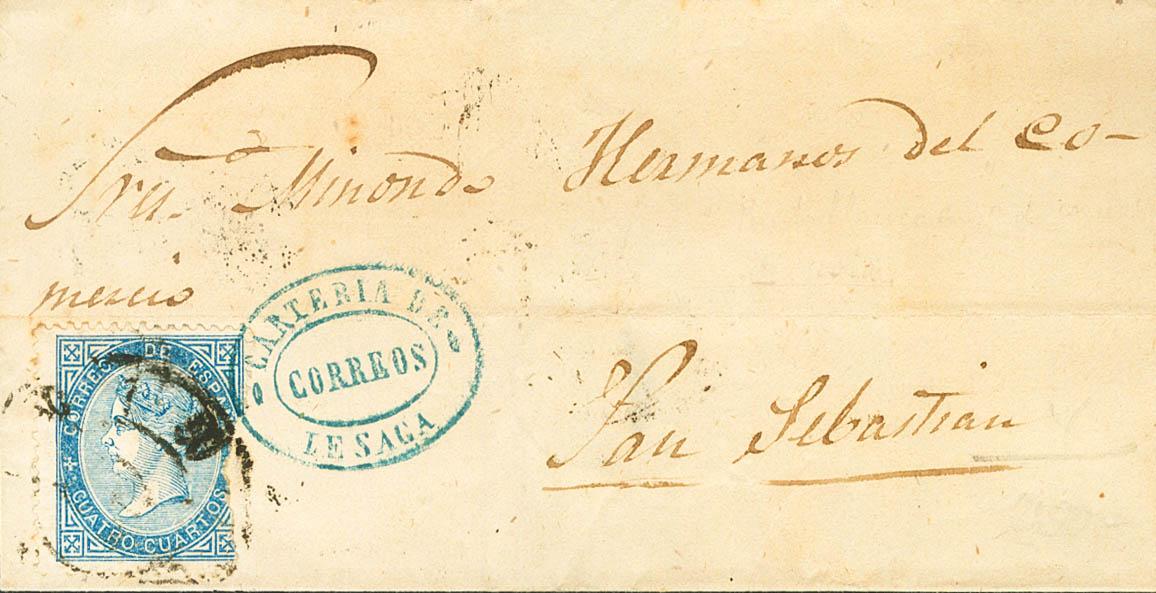 Sres. Minondo Hermanos del Co-
mercio
CARTERIA DE
CORREOS
LESACA
CORREOS DE ESPAÑA
CUATRO CUARTOS
San Sebastian